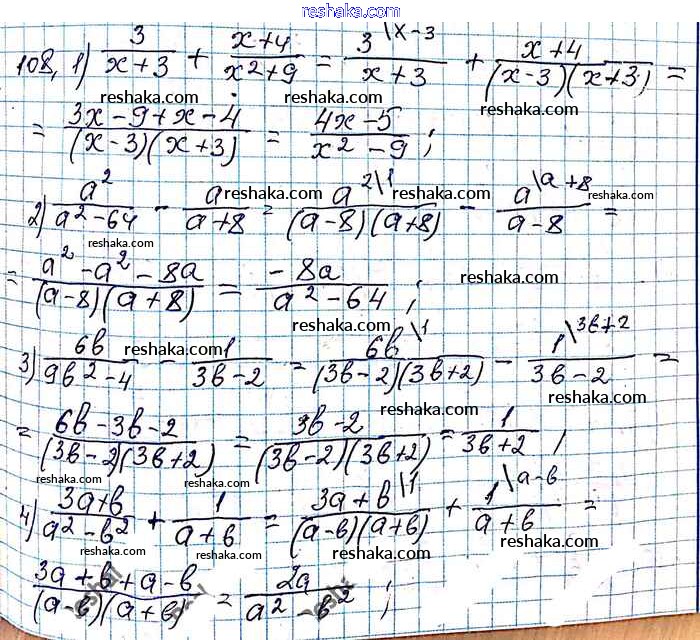 reshaka.com
108, 1) 3/(x+3) + (x+4)/(x²+9) = 3\x-3/(x+3) + (x+4)/((x-3)(x+3)) =
reshaka.com reshaka.com reshaka.com
= (3x-9+x-4)/((x-3)(x+3)) = (4x-5)/(x²-9);
2) a²/(a²-64) - a/(a+8) = a²\1/((a-8)(a+8)) - a\a+8/(a-8) =
reshaka.com reshaka.com reshaka.com reshaka.com
= (a²-a²-8a)/((a-8)(a+8)) = -8a/(a²-64);
reshaka.com reshaka.com
3) 6b/(9b²-4) - 1/(3b-2) = 6b\1/((3b-2)(3b+2)) - 1\3b+2/(3b-2) =
reshaka.com reshaka.com reshaka.com
= (6b-3b-2)/((3b-2)(3b+2)) = (3b-2)/((3b-2)(3b+2)) = 1/(3b+2),
reshaka.com reshaka.com reshaka.com
4) (3a+b)/(a²-b²) + 1/(a+b) = (3a+b)\1/((a-b)(a+b)) + 1\a-b/(a+b) =
reshaka.com reshaka.com
(3a+b+a-b)/((a-b)(a+b)) = 2a/(a²-b²);
reshaka.com